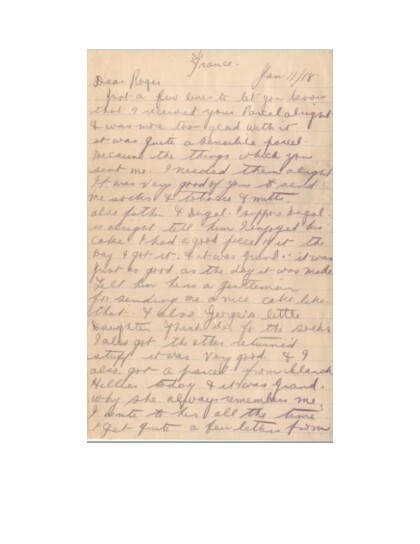 France.
Jan 11/18
Dear Roger
Just a few lines to let you know
that I received your Parcel alright
& was more than glad with it
it was quite a sensible parcel
because the things which you
sent me. I needed them alright
It was very good of you to send
me socks & tobacco & mitts.
also father & Dugal.
is alright tell him I enjoyed his
cake. I had a good piece of it the
day I got it. & it was grand. it was
just as good as the day it was made
Tell him he is a gentleman
for sending me a nice cake like
that. & also Georgie's little
Daughter thank her for the socks
I also got the other returned
stuff it was very good & I
also got a parcel from
today & it was Grand.
why she always remembers me.
I wrote to her all the time
I get quite a few letters from